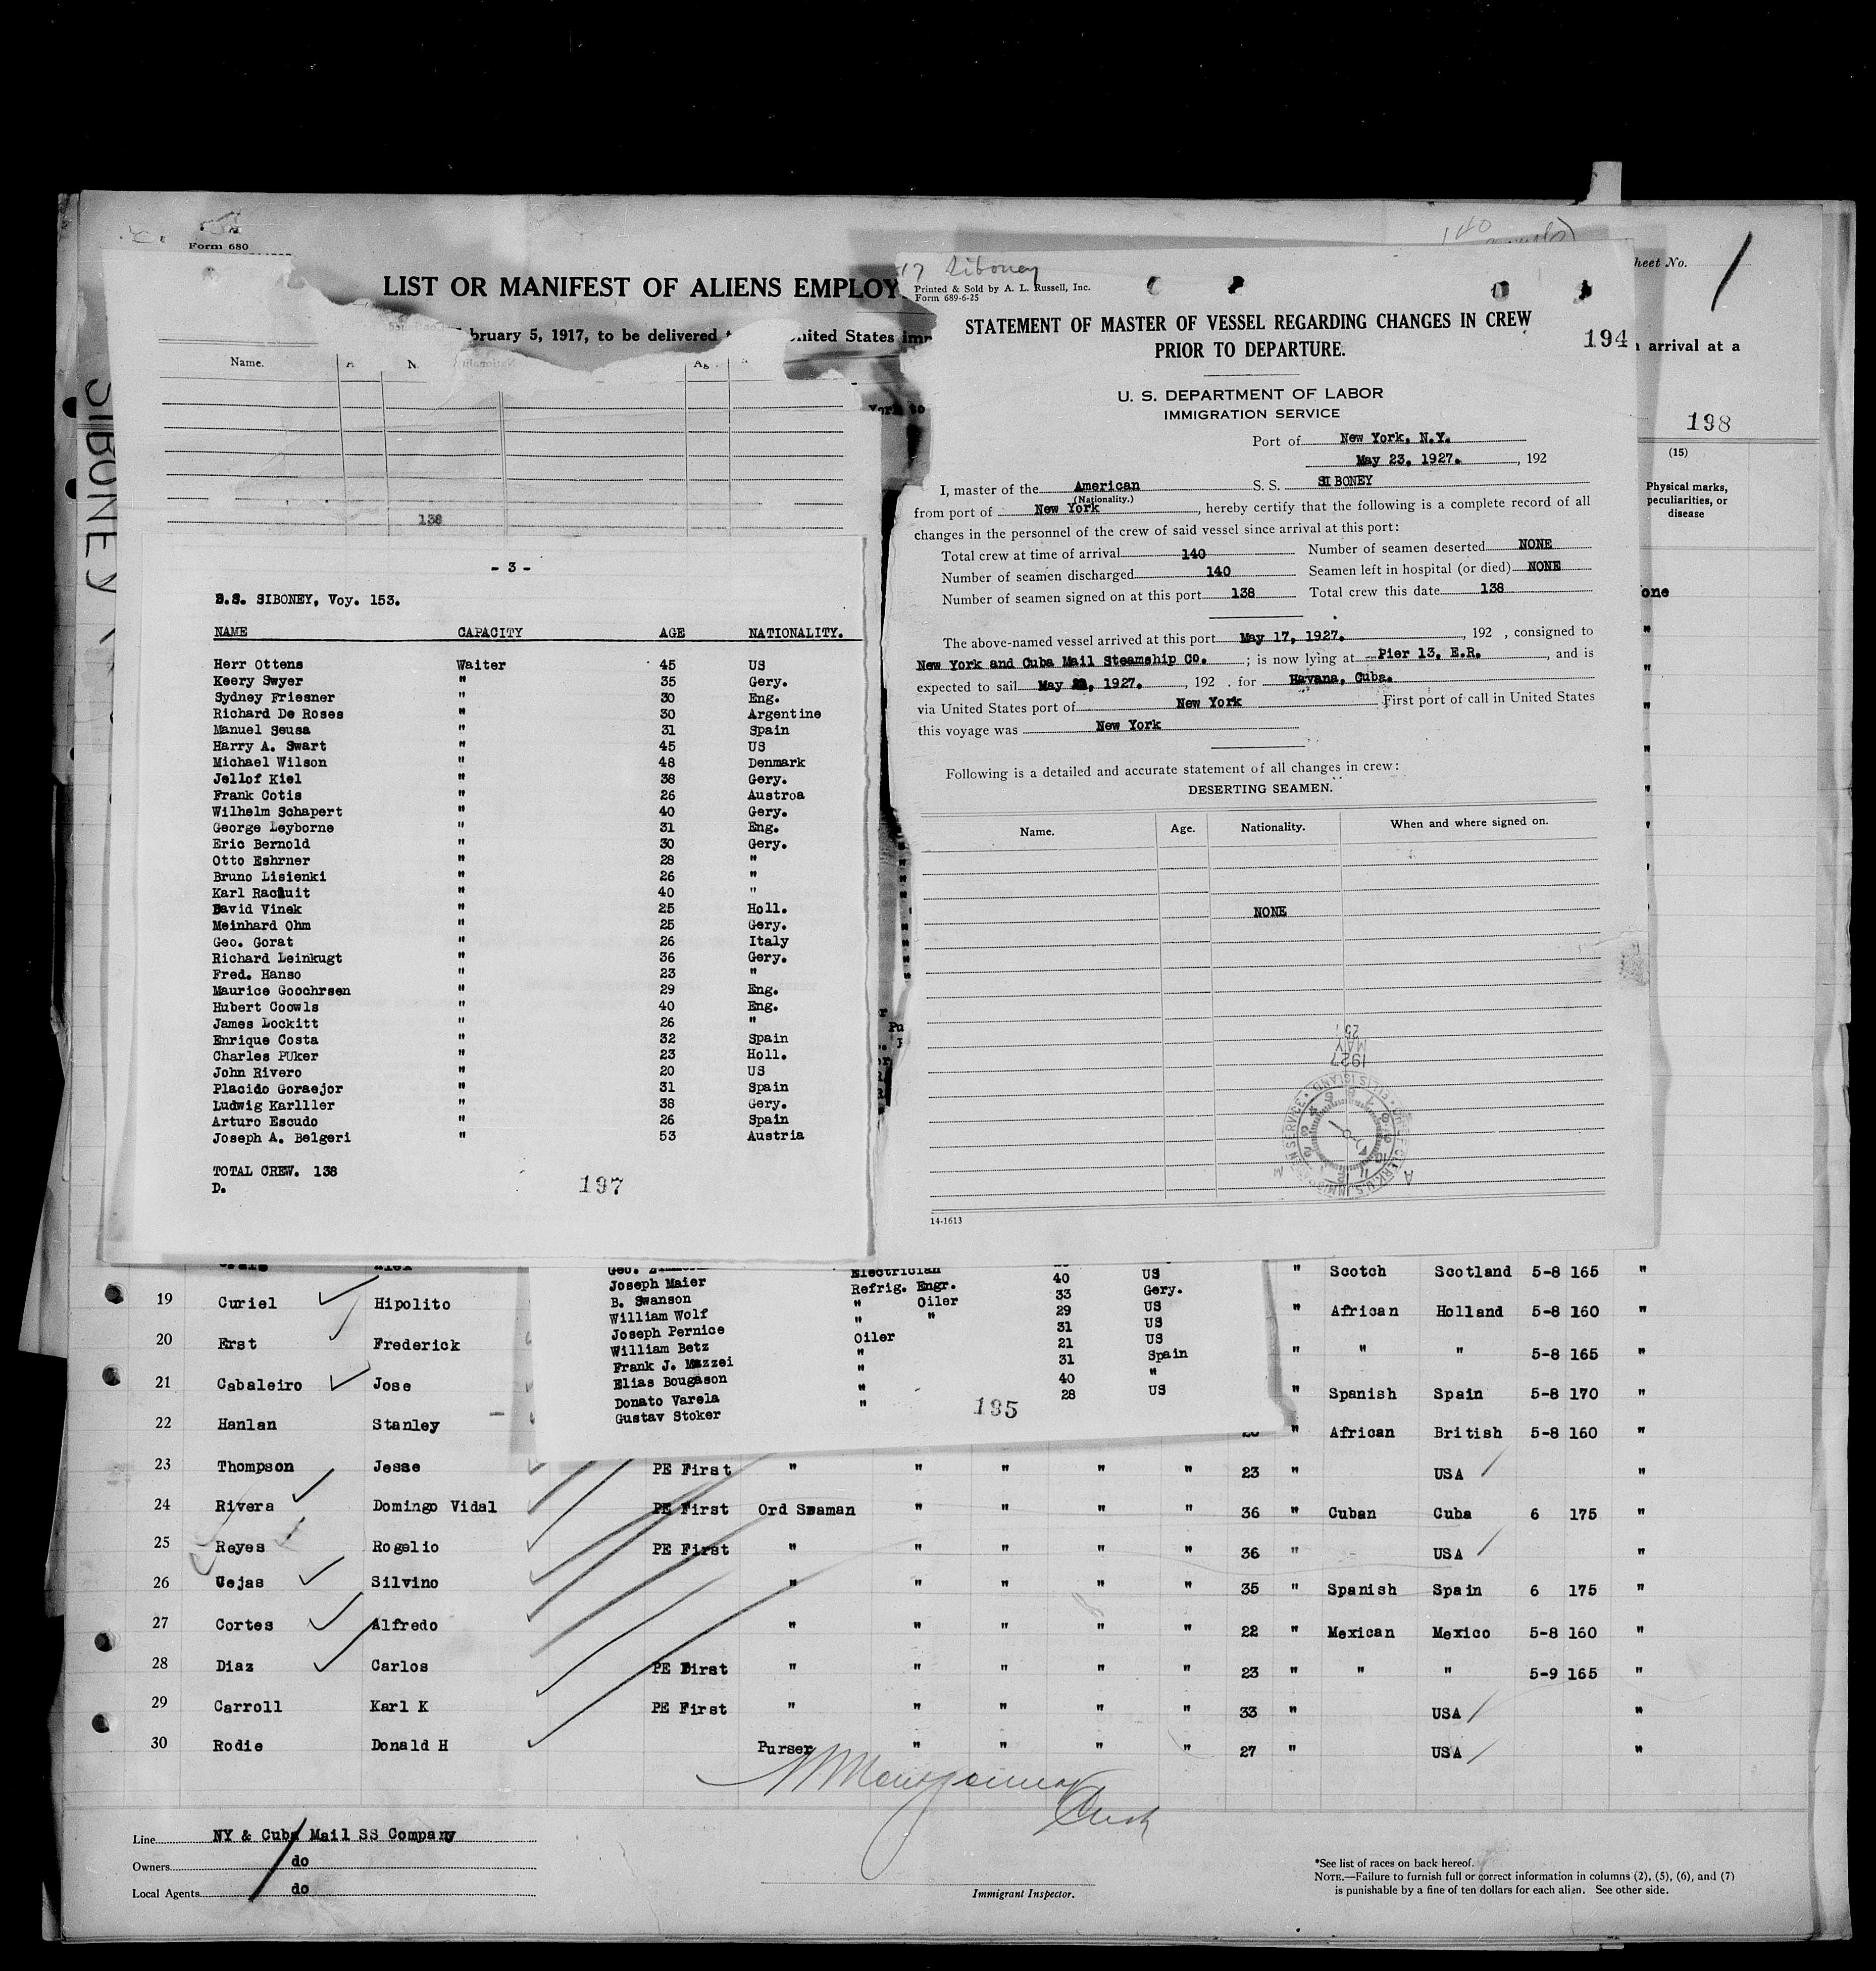 Form 680
LIST OR MANIFEST OF ALIENS EMPLOY
bruary 5, 1917, to be delivered
United States imm
Name.
138
SIBONEY
- 3 -
S.S. SIBONEY, Voy. 153.
NAME CAPACITY AGE NATIONALITY.
Herr Ottens Waiter 45 US
Keery Swyer " 35 Gery.
Sydney Friesner " 30 Eng.
Richard De Roses " 30 Argentine
Manuel Seusa " 31 Spain
Harry A. Swart " 45 US
Michael Wilson " 48 Denmark
Jellof Kiel " 38 Gery.
Frank Cotis " 26 Austroa
Wilhelm Schapert " 40 Gery.
George Leyborne " 31 Eng.
Eric Bernold " 30 Gery.
Otto Eshrner " 28 "
Bruno Lisienki " 26 "
Karl Racluit " 40 "
David Vinek " 25 Holl.
Meinhard Ohm " 25 Gery.
Geo. Gorat " 26 Italy
Richard Leinkugt " 36 Gery.
Fred. Hanso " 23 "
Maurice Goochrsen " 29 Eng.
Hubert Coowls " 40 Eng.
James Lockitt " 26 "
Enrique Costa " 32 Spain
Charles PUker " 23 Holl.
John Rivero " 20 US
Placido Goraejor " 31 Spain
Ludwig Karlller " 38 Gery.
Arturo Escudo " 26 Spain
Joseph A. Belgeri " 53 Austria
TOTAL CREW. 138
D.
197
17 Siboney
Printed & Sold by A. L. Russell, Inc.
Form 689-6-25
STATEMENT OF MASTER OF VESSEL REGARDING CHANGES IN CREW
PRIOR TO DEPARTURE.
194
U. S. DEPARTMENT OF LABOR
IMMIGRATION SERVICE
Port of New York, N.Y.
May 23, 1927. , 192
I, master of the American S. S. SIBONEY
(Nationality.)
from port of New York , hereby certify that the following is a complete record of all
changes in the personnel of the crew of said vessel since arrival at this port:
Total crew at time of arrival 140 Number of seamen deserted NONE
Number of seamen discharged 140 Seamen left in hospital (or died) NONE
Number of seamen signed on at this port 138 Total crew this date 138
The above-named vessel arrived at this port May 17, 1927. , 192 , consigned to
New York and Cuba Mail Steamship Co. ; is now lying at Pier 13, E.R. , and is
expected to sail May , 1927. , 192 . for Havana, Cuba.
via United States port of New York First port of call in United States
this voyage was New York
Following is a detailed and accurate statement of all changes in crew:
DESERTING SEAMEN.
Name. Age. Nationality. When and where signed on.
NONE
1927
MAY
25
14-1613
140
heet No. 1
n arrival at a
198
(15)
Physical marks,
peculiarities, or
disease
Electrician
Joseph Maier Refrig. Engr. 40 US
B. Swanson " Oiler 33 Gery.
William Wolf " " 29 US
Joseph Pernice Oiler 31 US
William Betz " 21 US
Frank J. Mazzei " 31 Spain
Elias Bougason " 40 "
Donato Varela " 28 US
Gustav Stoker
195
" Scotch Scotland 5-8 165 "
19 Curiel Hipolito " African Holland 5-8 160 "
20 Erst Frederick " " " 5-8 165 "
21 Cabaleiro Jose " Spanish Spain 5-8 170 "
22 Hanlan Stanley " African British 5-8 160 "
23 Thompson Jesse PE First " " " " " 23 " USA "
24 Rivera Domingo Vidal PE First Ord Seaman " " " " 36 " Cuban Cuba 6 175 "
25 Reyes Rogelio PE First " " " " " 36 " USA "
26 Cejas Silvino " " " " " 35 " Spanish Spain 6 175 "
27 Cortes Alfredo " " " " " 22 " Mexican Mexico 5-8 160 "
28 Diaz Carlos PE First " " " " " 23 " " " 5-9 165 "
29 Carroll Karl K PE First " " " " " 33 " USA "
30 Rodie Donald H Purser " " " " 27 " USA "
Line NY & Cuba Mail SS Company
Owners do
Local Agents do
Immigrant Inspector.
*See list of races on back hereof.
NOTE.—Failure to furnish full or correct information in columns (2), (5), (6), and (7)
is punishable by a fine of ten dollars for each alien. See other side.